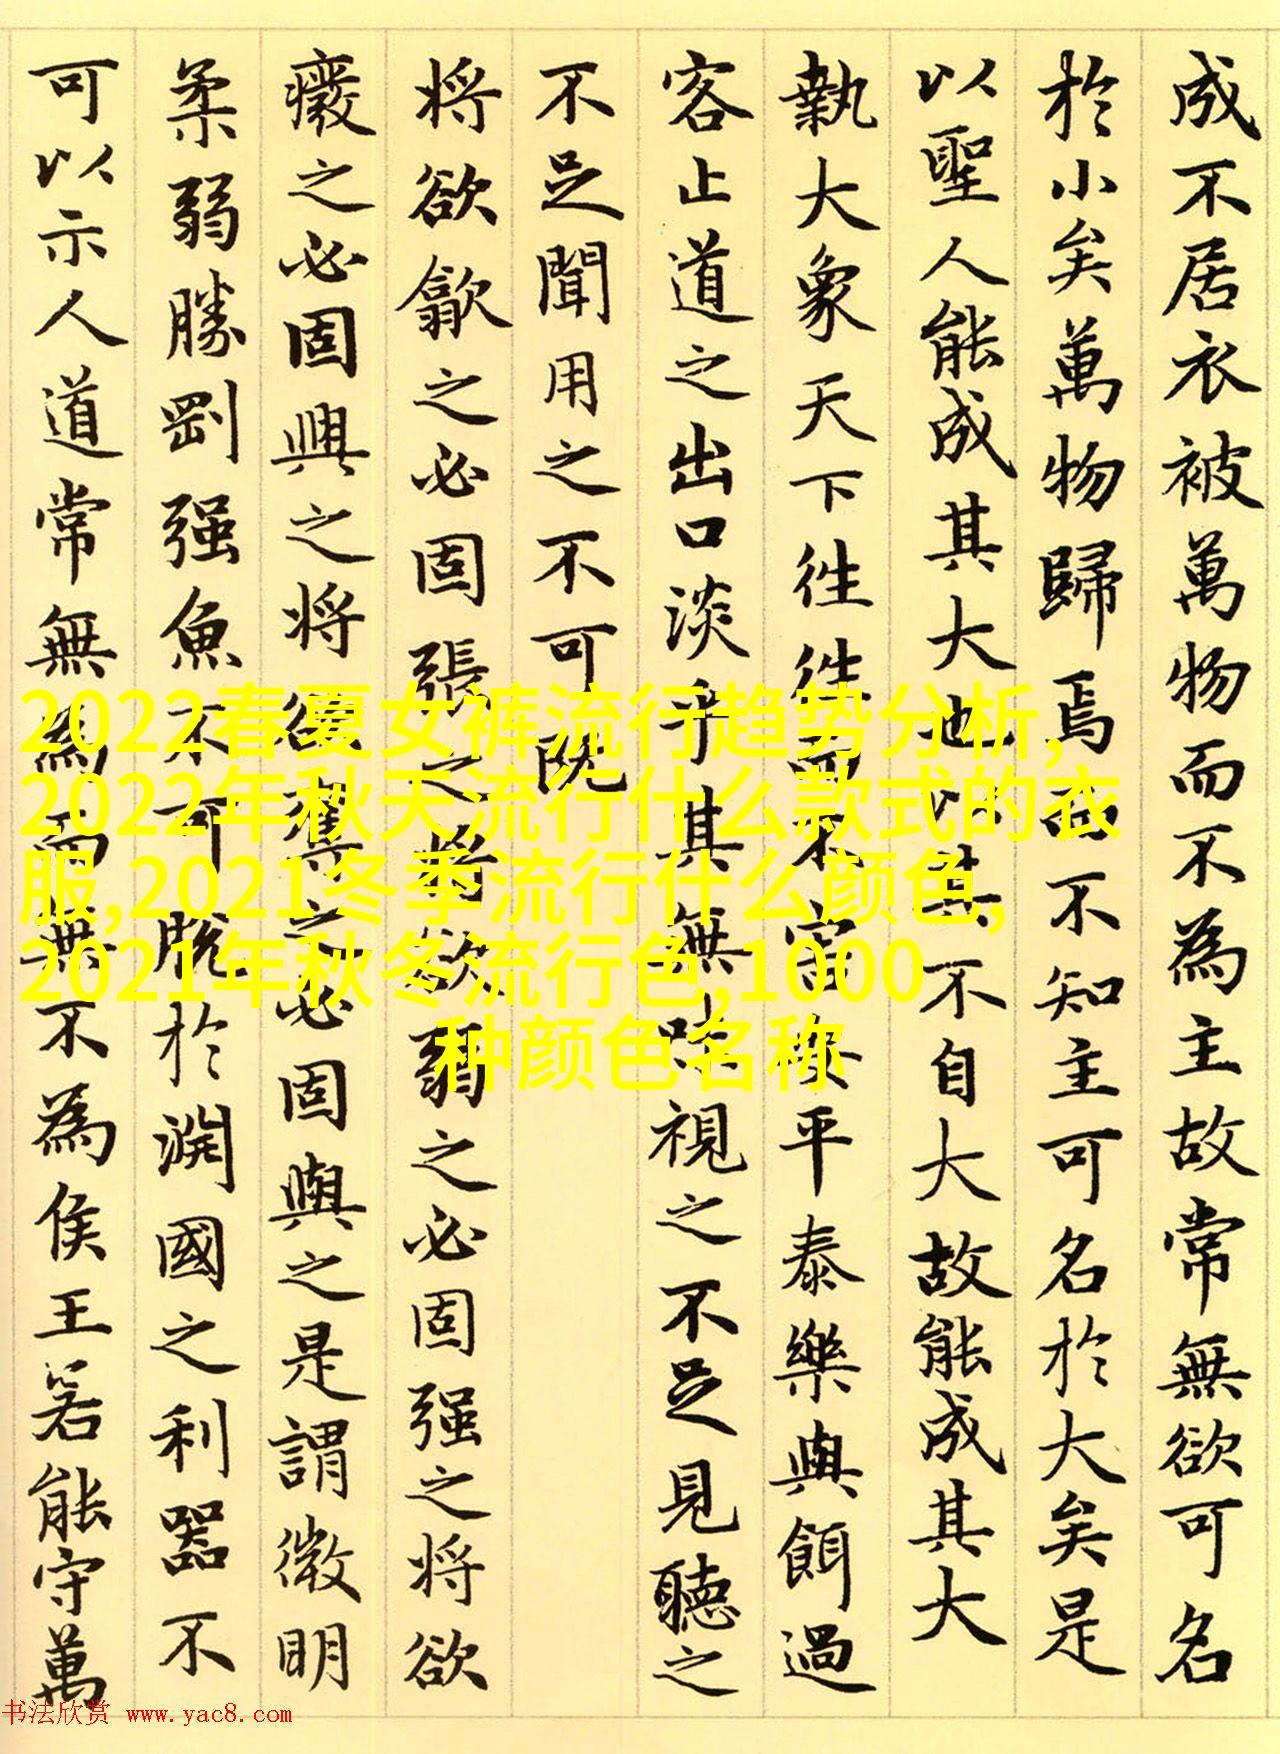 成不居衣被萬物而不為主故常無欲可名
於小矣萬物歸焉而不知主可名於大矣是
以聖人能成其大也以其不自大故能成其大
執大象天下徃徃而不害安平泰樂與餌過
客止道之出口淡乎其無味視之不足見聽之
不足聞用之不可既
将欲歙之必固張之将欲弱之必固强之将欲
癈之必固興之将欲奪之必固與之是謂微明
柔弱勝剛强魚不可脱於淵國之利器不
可以示人道常無為而無不為侯王若能守萬
2022春夏女裤流行趋势分析,
2022年秋天流行什么款式的衣
服,2021冬季流行什么颜色,
2021年秋冬流行色,1000
种颜色名称
书法欣赏 www.yac8.com